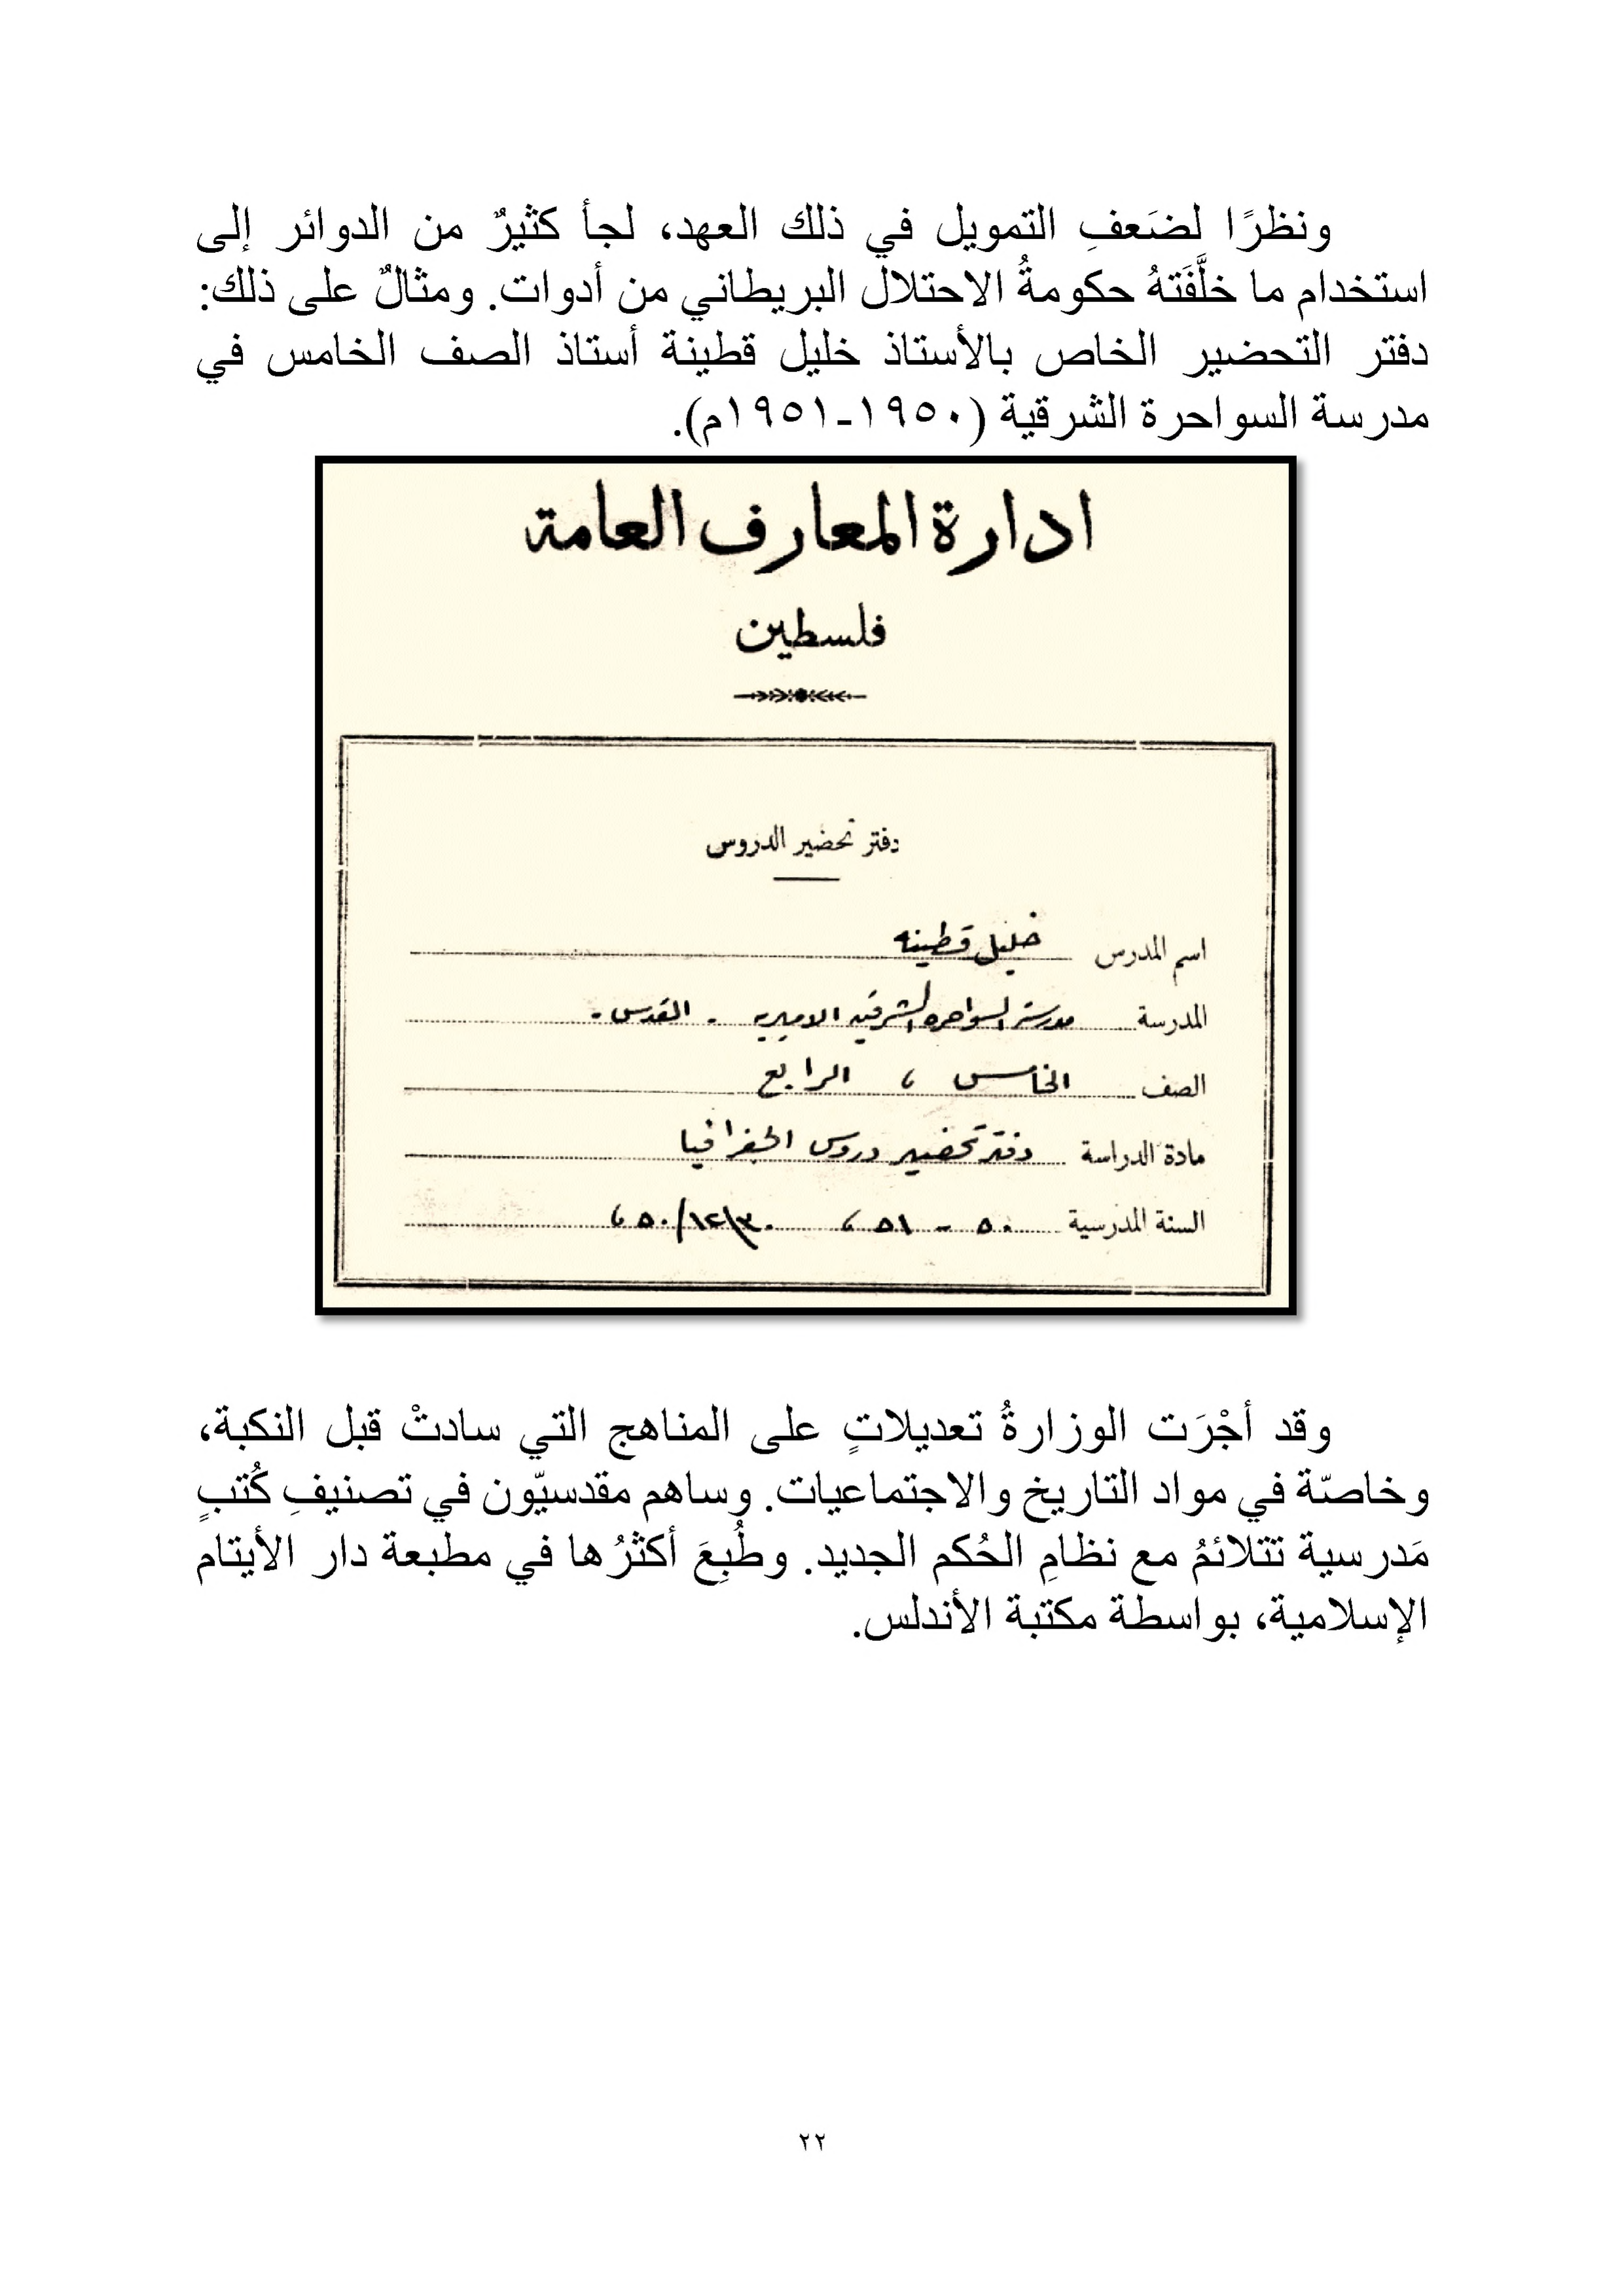 ونظرًا لضَعفِ التمويل في ذلك العهد، لجأ كثيرٌ من الدوائر إلى
استخدام ما خلَّفَتهُ حكومةُ الاحتلال البريطاني من أدوات. ومثالٌ على ذلك:
دفتر التحضير الخاص بالأستاذ خليل قطينة أستاذ الصف الخامس في
مدرسة السواحرة الشرقية (١٩٥٠-١٩٥١م).
ادارة المعارف العامة
فلسطين
دفتر تحضير الدروس
اسم المدرس خليل قطينه
المدرسة مدرسة السواحره الشرقيه الاميريه - القدس -
الصف الخامس ، الرابع
مادة الدراسة دفتر تحضير دروس الجغرافيا
السنة المدرسية ٥٠ - ٥١ ، ٣٠/١٢/٥٠ ،
وقد أجْرَت الوزارةُ تعديلاتٍ على المناهج التي سادتْ قبل النكبة،
وخاصّة في مواد التاريخ والاجتماعيات. وساهم مقدسيّون في تصنيفِ كُتبٍ
مَدرسية تتلائمُ مع نظامِ الحُكم الجديد. وطُبِعَ أكثرُها في مطبعة دار الأيتام
الإسلامية، بواسطة مكتبة الأندلس.
٢٢